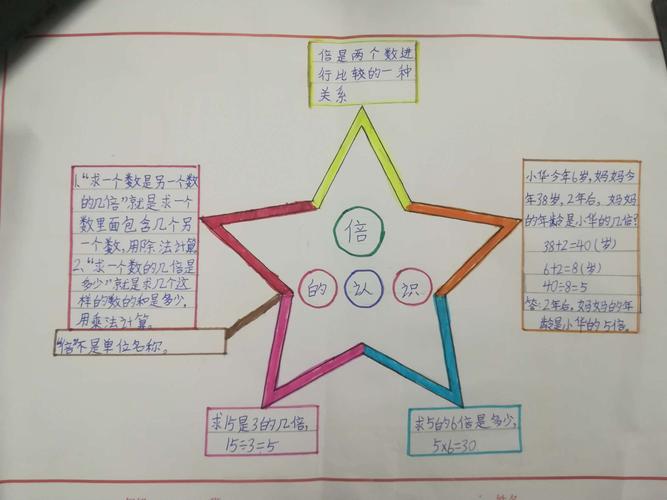 倍是两个数进
行比较的一种
关系
1."求一个数是另一个数
的几倍"就是求一个
数里面包含几个另
一个数,用除法计算
2."求一个数的几倍是
多少"就是求几个这
样的数的和是多少,
用乘法计算。
"倍"不是单位名称。
倍
的认识
小华今年6岁,妈妈今
年38岁,2年后,妈妈
的年龄是小华的几倍?
38+2=40(岁)
6+2=8(岁)
40÷8=5
答:2年后,妈妈的年
龄是小华的5倍。
求15是3的几倍,
15÷3=5
求5的6倍是多少,
5×6=30